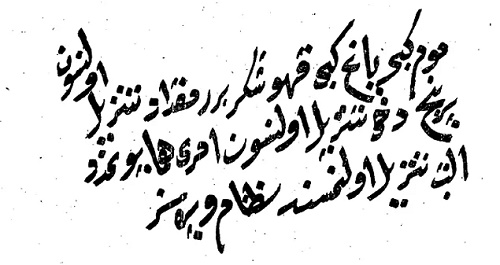 موم کبی یاغ کبی قهوه شکر برر مقدار تنزیل اولنسون
پرنج دخی تنزیل اولنسون امری همایونمدر
تنزیل اولنمسنه نظام ویره سز